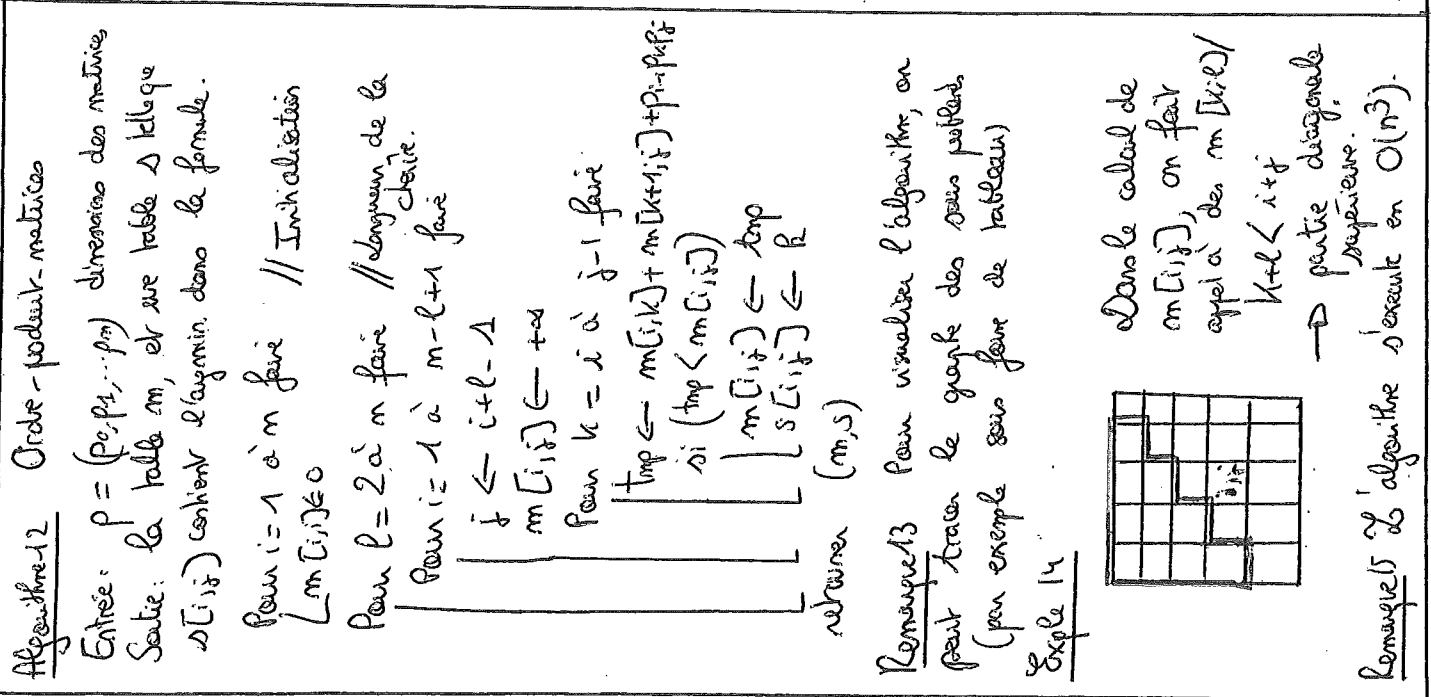 Algorithme 12 Ordre-produit-matrices
Entrée: p = (p0, p1, ... pn) dimensions des matrices
Sortie: la table m, et une table s telle que
s[i,j] contient l'argmin dans la formule.
Pour i = 1 à n faire // Initialisation
m[i,i] ← 0
Pour l = 2 à n faire // Longueur de la chaîne.
Pour i = 1 à n-l+1 faire
j ← i+l-1
m[i,j] ← +∞
Pour k = i à j-1 faire
tmp ← m[i,k] + m[k+1,j] + pi-1 pk pj
si (tmp < m[i,j])
m[i,j] ← tmp
s[i,j] ← k
retourner (m,s)
Remarque 13 Pour visualiser l'algorithme, on
peut tracer le graphe des sous problèmes
(par exemple sous forme de tableau)
Exple 14
i,j
Dans le calcul de
m[i,j], on fait
appel à des m[k,l] /
k+l < i+j
→ partie diagonale
supérieure.
Remarque 15 L'algorithme s'execute en O(n³).